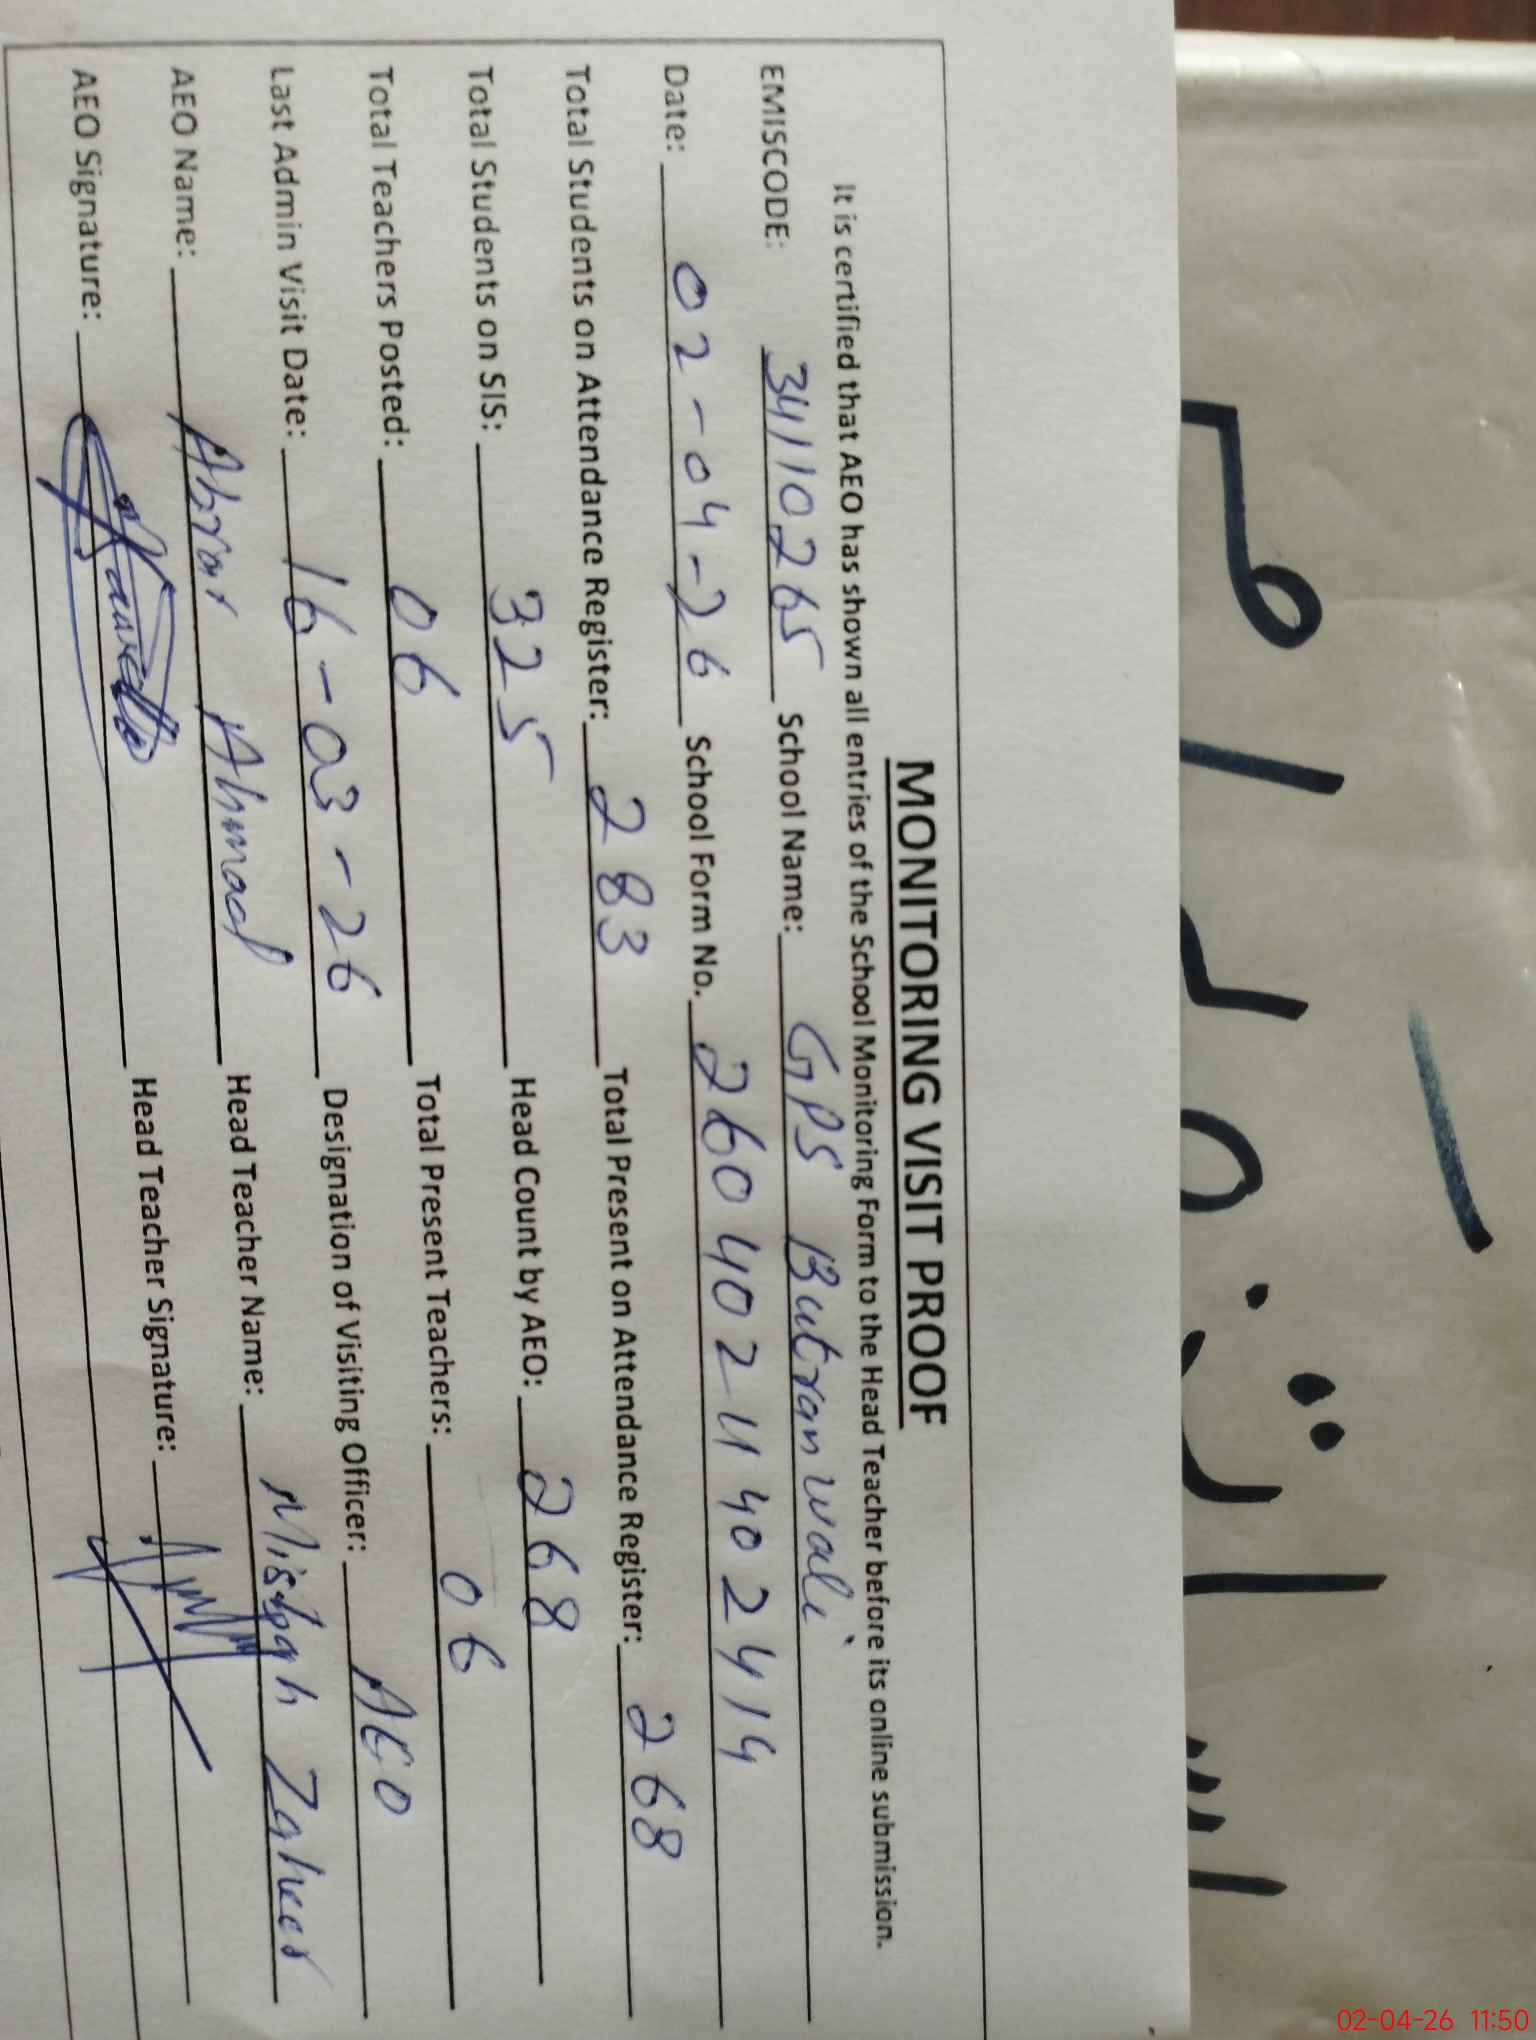 MONITORING VISIT PROOF
It is certified that AEO has shown all entries of the School Monitoring Form to the Head Teacher before its online submission.
EMISCODE: 34110265 School Name: GPS Butranwali
Date: 02-04-26 School Form No. 260402114402414
Total Students on Attendance Register: 283 Total Present on Attendance Register: 268
Total Students on SIS: 325 Head Count by AEO: 268
Total Teachers Posted: 06 Total Present Teachers: 06
Last Admin Visit Date: 16-03-26 Designation of Visiting Officer: AEO
AEO Name: Abrar Ahmad Head Teacher Name: Misbah Zaheer
AEO Signature: Head Teacher Signature:
02-04-26 11:50